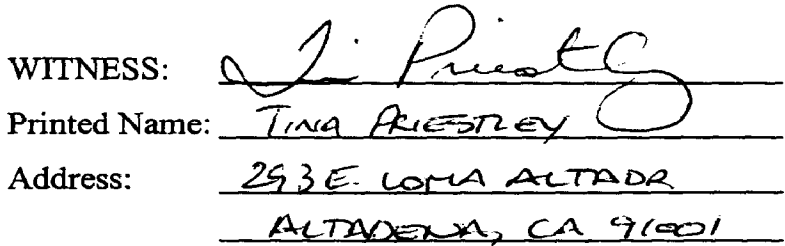 WITNESS: Tina Priestley
Printed Name: TINA PRIESTLEY
Address: 293 E. LOMA ALTA DR
ALTADENA, CA 91001